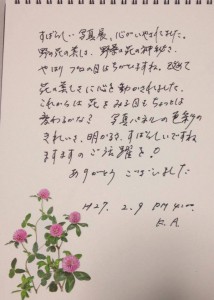 すばらしい写真展、心がいやされました。
野の花の美しさ、野草の花の神秘さ、
やはりプロの目はちがいますね、改めて
花の美しさに心を動かされました。
これからは花をみる目もちょっとは
変わるかな? 写真パネルの色彩の
きれいさ、明かるさ、すばらしいですね
ますますのご活躍を!
ありがとうございました
H27. 2. 9 PM 4:00.
K. A.